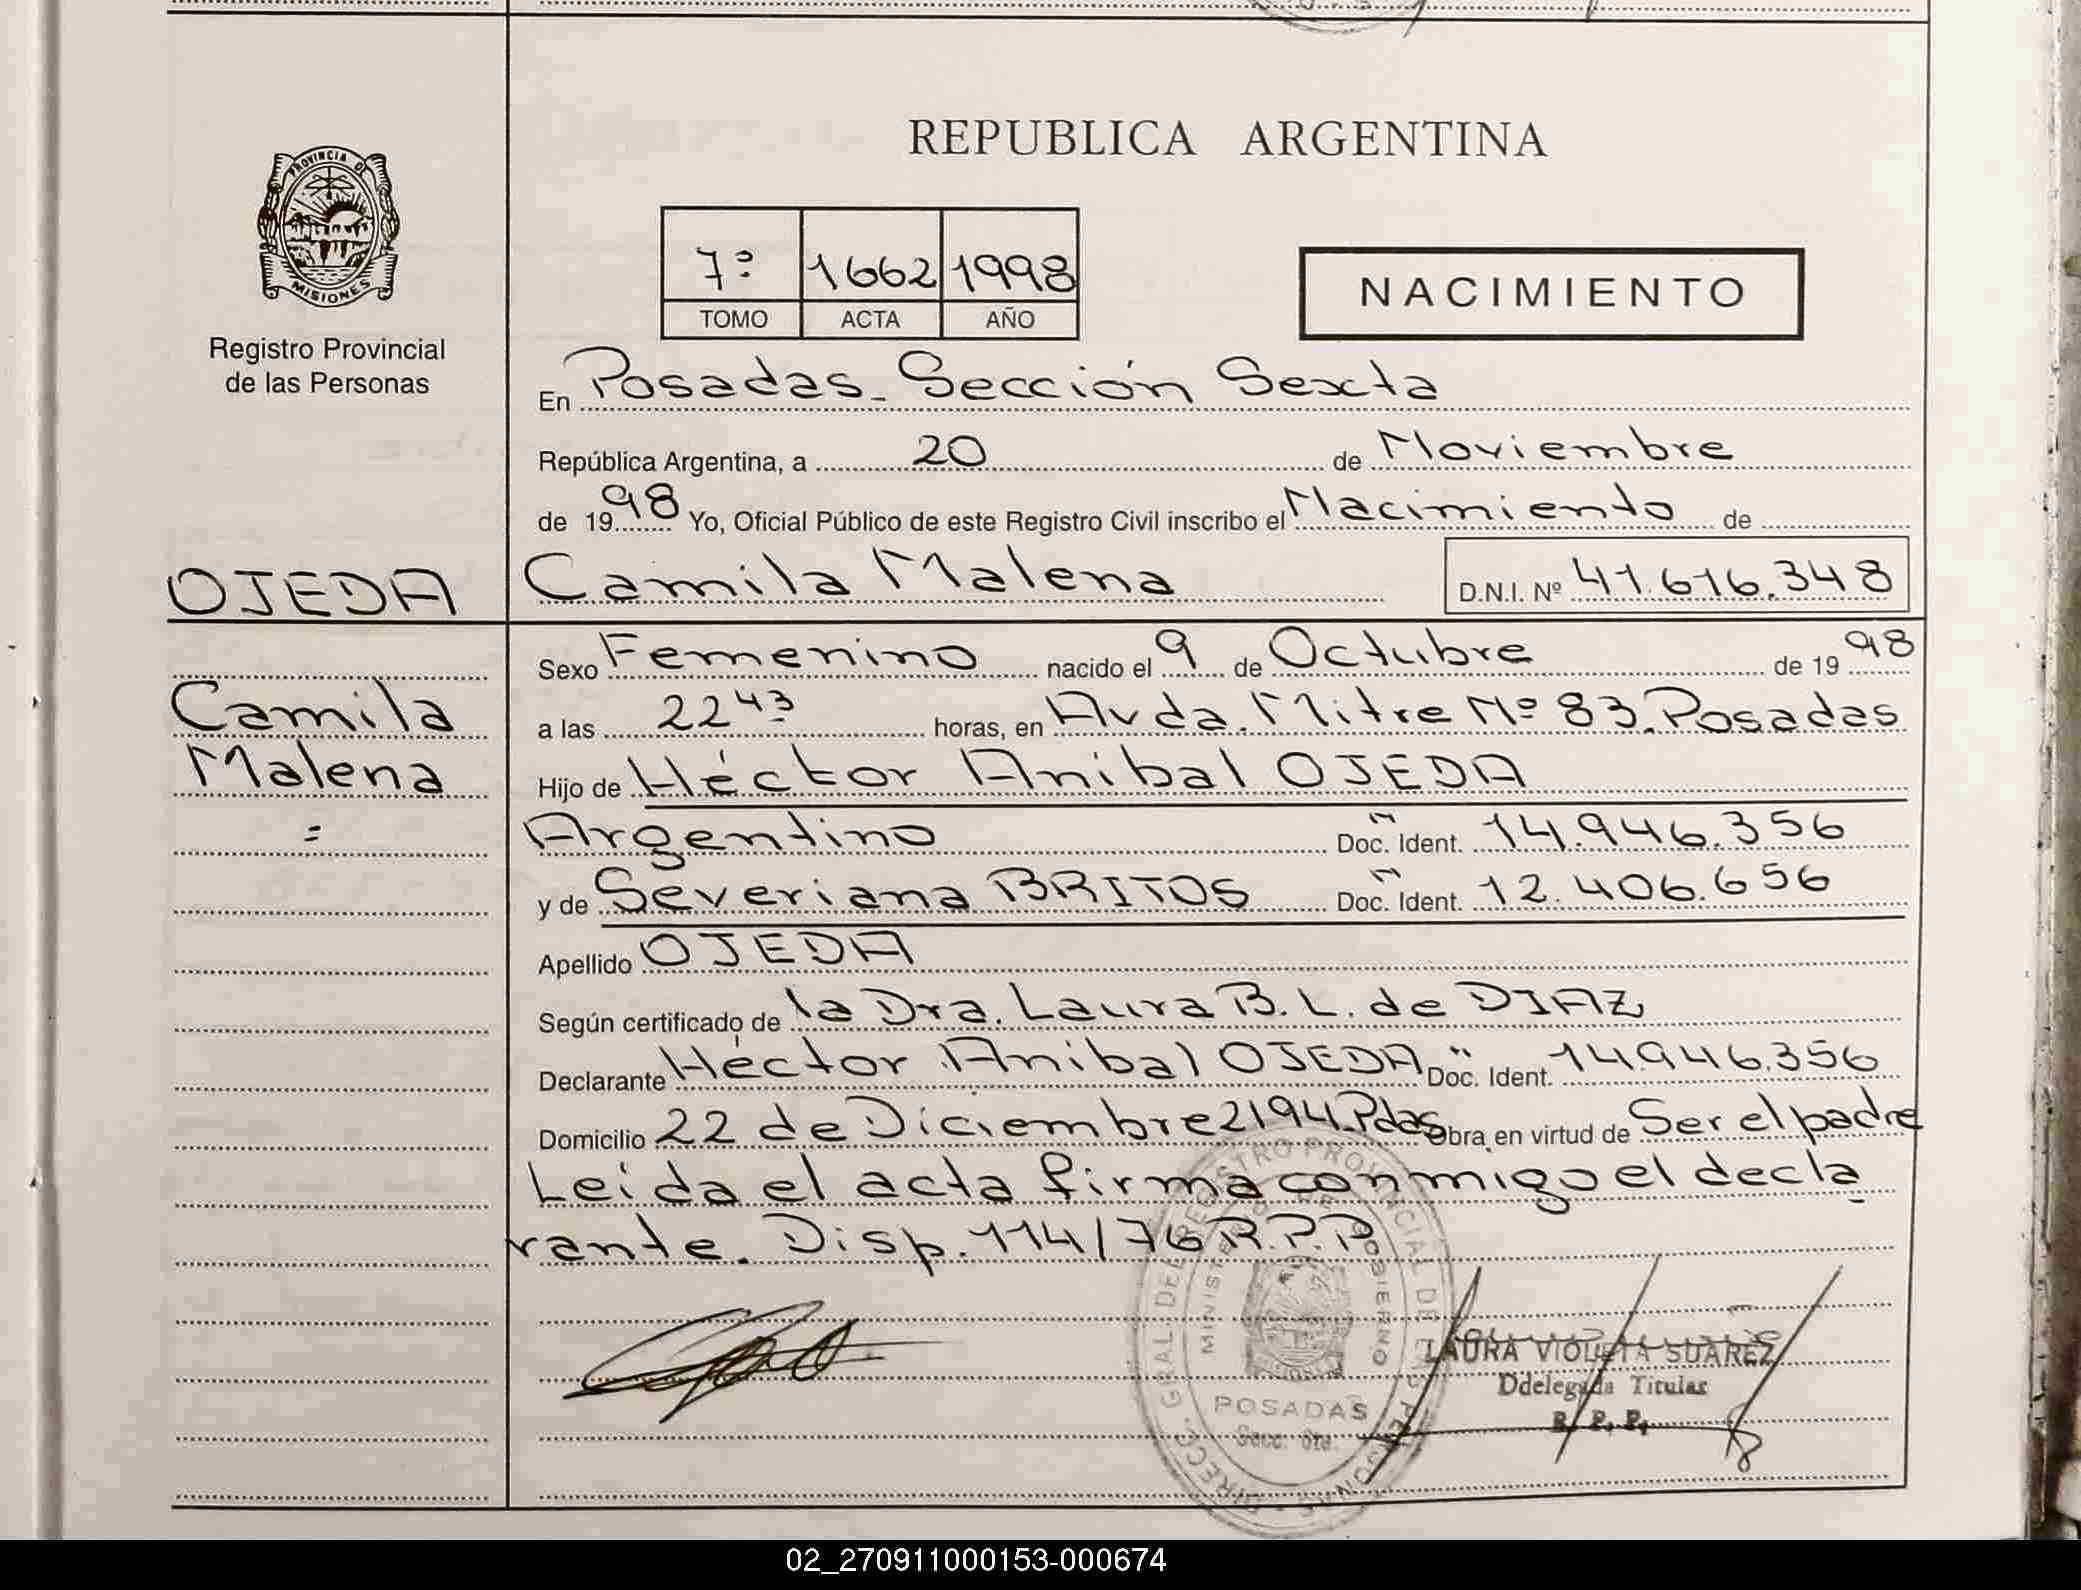 REPUBLICA ARGENTINA
PROVINCIA DE
MISIONES
Registro Provincial
de las Personas
7º 1662 1998
TOMO ACTA AÑO
NACIMIENTO
En Posadas - Sección Sexta
República Argentina, a 20 de Noviembre
de 1998 Yo, Oficial Público de este Registro Civil inscribo el Nacimiento de
OJEDA Camila Malena D.N.I. Nº 41.616.348
Sexo Femenino nacido el 9 de Octubre de 1998
Camila
a las 22 43 horas, en Avda. Mitre Nº 83. Posadas
Malena
Hijo de Héctor Anibal OJEDA
=
Argentino Doc. Ident. 14.946.356
y de Severiana BRITOS Doc. Ident. 12.406.656
Apellido OJEDA
Según certificado de la Dra. Laura B. L. de DIAZ
Declarante Héctor Anibal OJEDA Doc. Ident. 14.946.356
Domicilio 22 de Diciembre 2194. Pdas Obra en virtud de Ser el padre
Leida el acta firma conmigo el decla
rante. Disp. 114/76 R.P.P.
DIRECC. GRAL DEL REGISTRO PROVINCIAL DE PERSONAS
MINISTERIO DE GOBIERNO
POSADAS
Secc. 6ta.
LAURA VIOLETA SUAREZ
Ddelegada Titular
R. P. P.
02_270911000153-000674